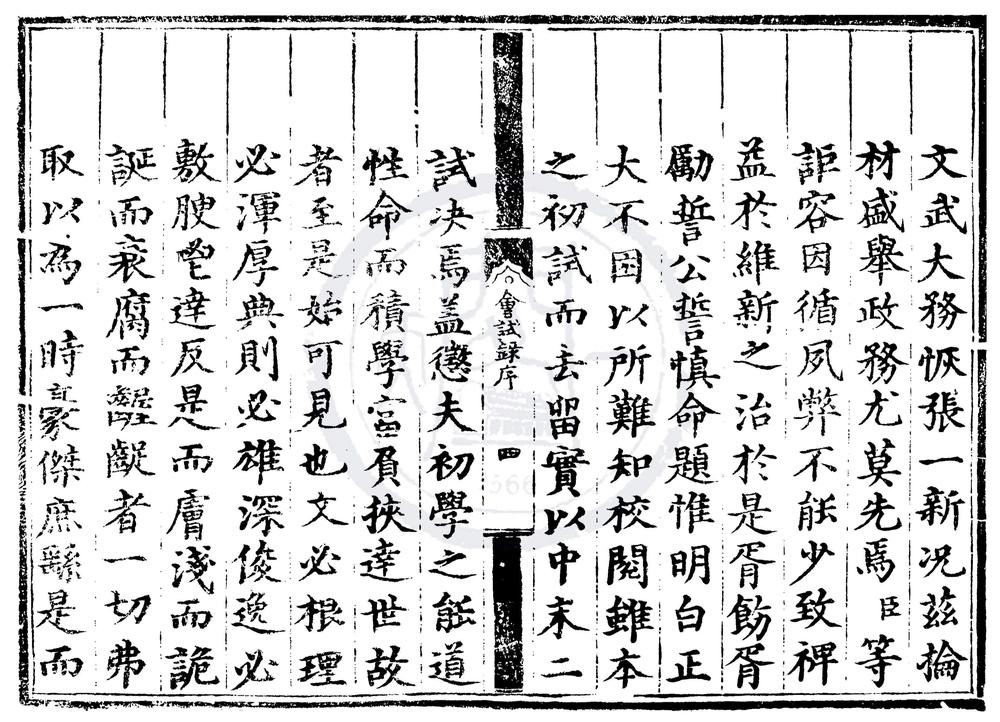 文武大務恢張一新况茲掄
材盛舉政務尤莫先焉臣等
詎容因循夙弊不能少致裨
益於維新之治於是胥飭胥
勵誓公誓慎命題惟明白正
大不困以所難知校閱雖本
之初試而去留實以中末二
會試錄序
四
試决焉蓋懲夫初學之能道
性命而積學宮負挾達世故
者至是始可見也文必根理
必渾厚典則必雄深俊逸必
敷腴鬯達反是而膚淺而詭
誕而衰腐而齷齪者一切弗
取以為一時豪傑庶繇是而